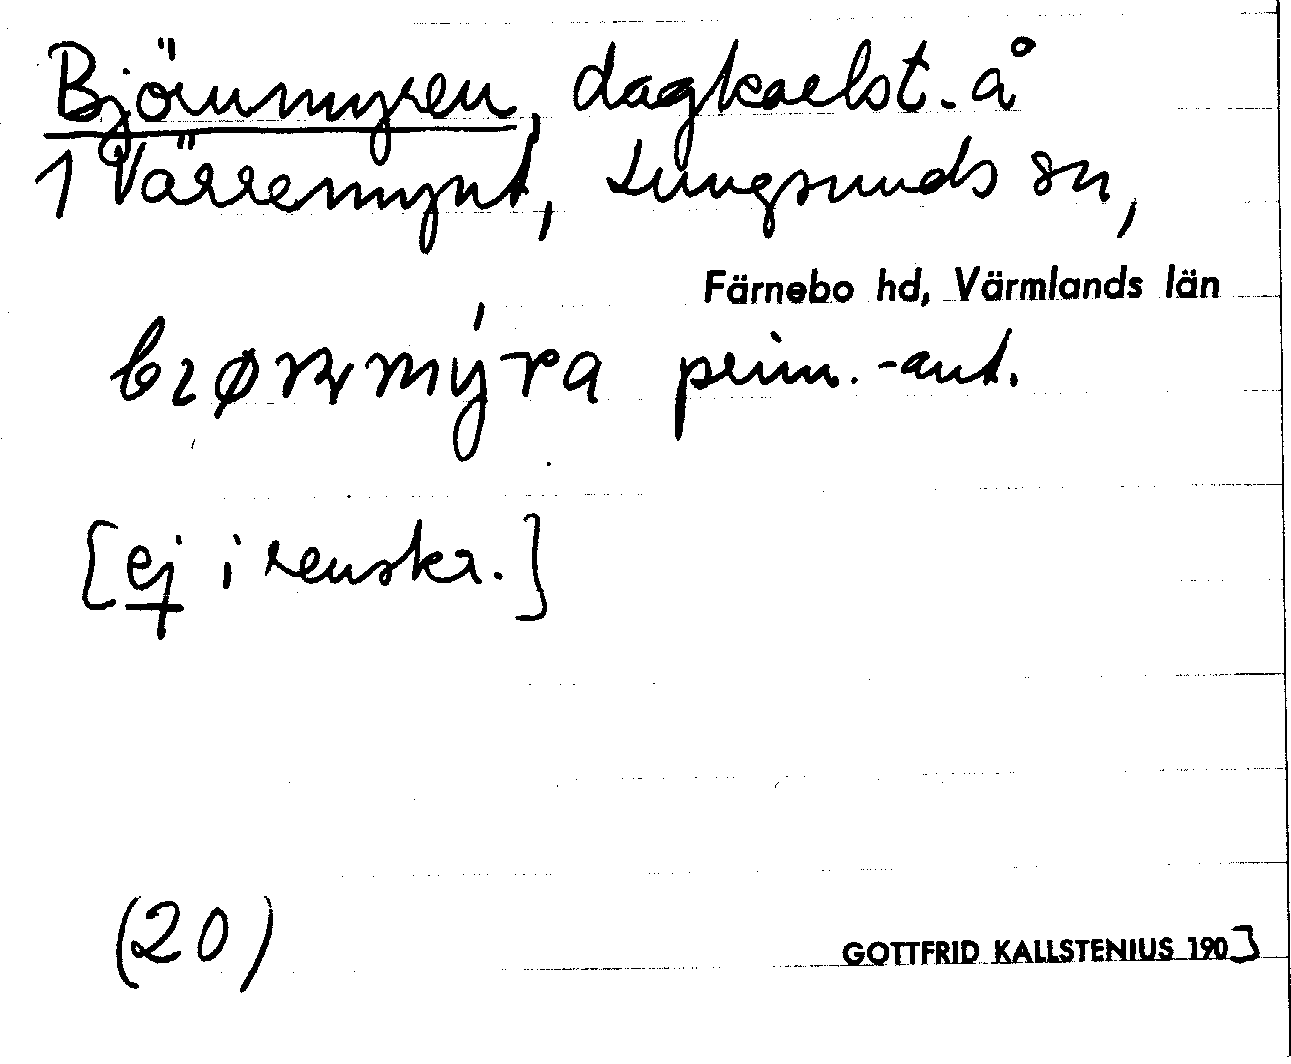 Björnmyren, dagkarlst. å
1 Värremynt, Lungsunds sn,
Färnebo hd, Värmlands län
prim. -ant.
[ej i renskr.]
(20)
GOTTFRID KALLSTENIUS 1903